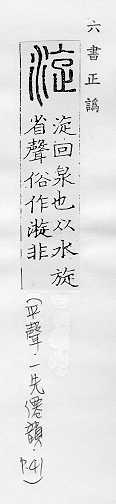 六書正譌
㳬
㳬回泉也从水旋
省聲俗作漩非
(平聲.一先僊韻.P.41)